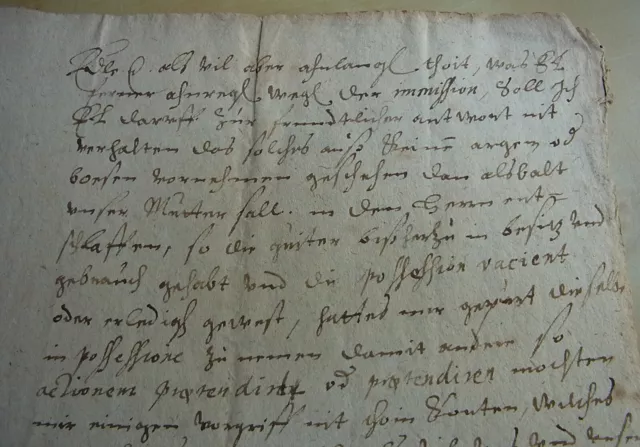 als vil aber ahnlangt thoit, was
ferner ahnregt wegl der immission, Soll Ich
darvff zur freundtlicher antwort nit
verhalten das solches auß keine argem od
boesen vornehmen geschehen dan alsbalt
vnser Mutter sall. in dem Herrn ent=
schlaffen, so die guiter bißherzu in besitz vnd
gebrauch gehabt vnd die possession vacient
oder erledigh gewest, hattes mir gepürt dieselbe
in possessione zu nemen damit andere so
actionem prætendirt od prætendiren mochten
mir einigen vorgriff nit thoin konten, wilches
vnd